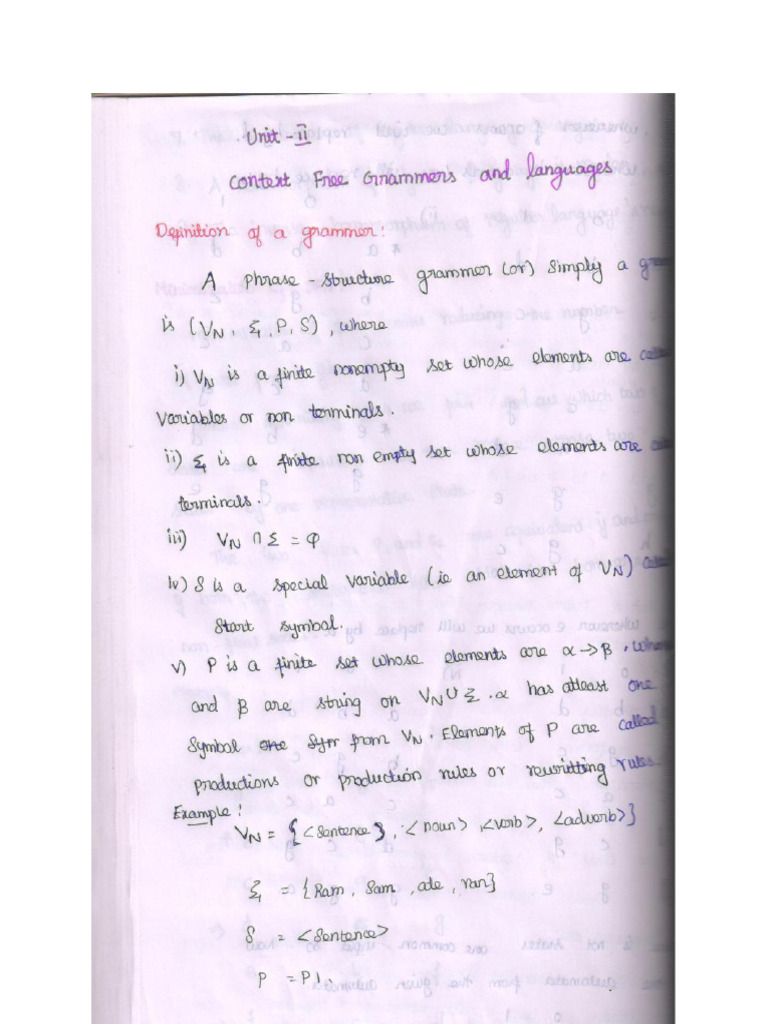 Unit - II
Context Free Grammers and languages
Definition of a grammer:
A phrase - structure grammer (or) simply a
is (VN, Σ, P, S), where
i) VN is a finite nonempty set whose elements are called
variables or non terminals.
ii) Σ is a finite non empty set whose elements are
terminals.
iii) VN ∩ Σ = φ
iv) S is a special variable (ie an element of VN) called
Start symbol.
v) P is a finite set whose elements are α → β, where
and β are string on VN ∪ Σ. α has atleast one
symbol one Sym from VN. Elements of P are called
productions or production rules or rewritting rules.
Example:
VN = {<sentence>, <noun>, <verb>, <adverb>}
Σ = {Ram, Sam, ate, ran}
S = <Sentence>
P = P1,